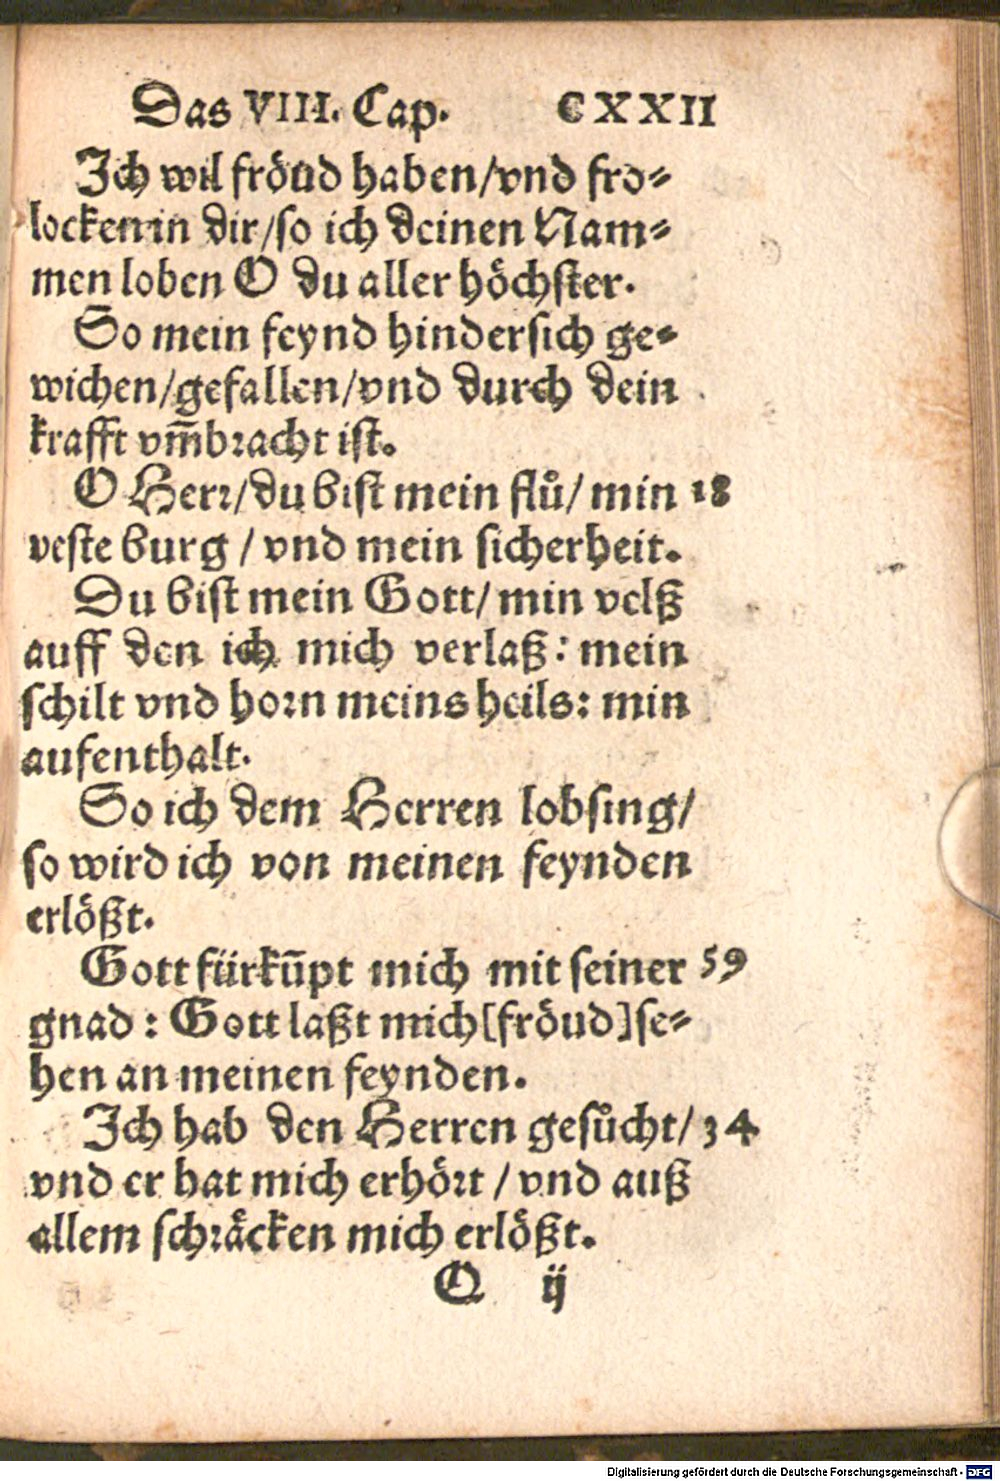 Das VIII. Cap. CXXII
Ich wil fröud haben/vnd fro⸗
locken in dir/so ich deinen Nam⸗
men loben O du aller höchster.
So mein feynd hindersich ge⸗
wichen/gefallen/vnd durch dein
krafft vm̄bracht ist.
O Herr/du bist mein flů/ min 18
veste burg / vnd mein sicherheit.
Du bist mein Gott/ min velß
auff den ich mich verlaß: mein
schilt vnd horn meins heils: min
aufenthalt.
So ich dem Herren lobsing/
so wird ich von meinen feynden
erlößt.
Gott fürkūpt mich mit seiner 59
gnad : Gott laßt mich [fröud] se⸗
hen an meinen feynden.
Ich hab den Herren gesůcht/ 34
vnd er hat mich erhört / vnd auß
allem schräcken mich erlößt.
Q ij
Digitalisierung gefördert durch die Deutsche Forschungsgemeinschaft - DFG